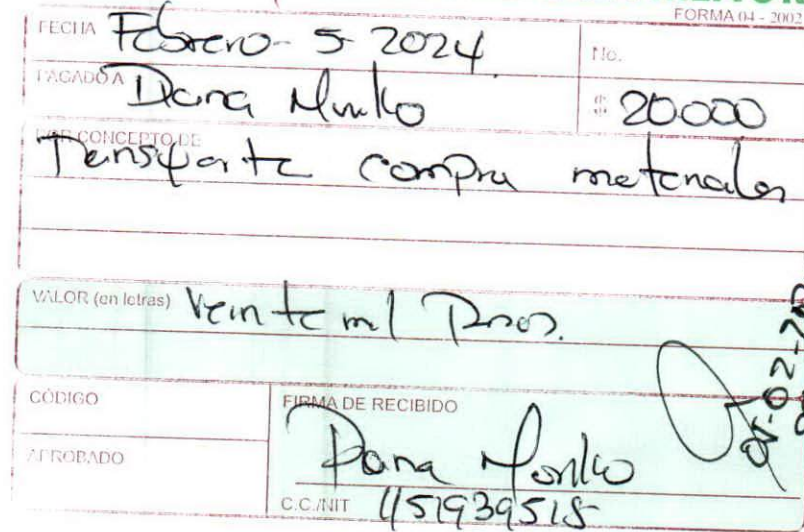 FORMA 04 - 2002
FECHA Febrero - 5 2024 No.
PAGADO A Dana $ 20000
POR CONCEPTO DE
Transporte compra materiales
VALOR (en letras) Veinte mil Pesos.
CÓDIGO FIRMA DE RECIBIDO
APROBADO Dana
C.C./NIT 1151939518